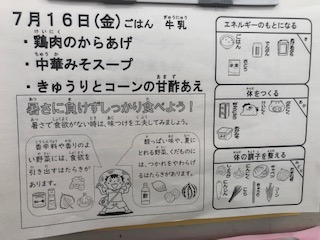 7月16日(金)ごはん 牛乳
・鶏肉のからあげ
・中華みそスープ
・きゅうりとコーンの甘酢あえ
暑さに負けずしっかり食べよう!
暑さで食欲がない時は、味つけを工夫してみましょう。
香辛料や香りのよ
い野菜には、食欲を
引き出すはたらきが
あります。
酸っぱい味や、夏に
とれる野菜、くだものに
は、つかれをやわらげ
るはたらきがあります。
エネルギーのもとになる
ごはん
体をつくる
体の調子を整える